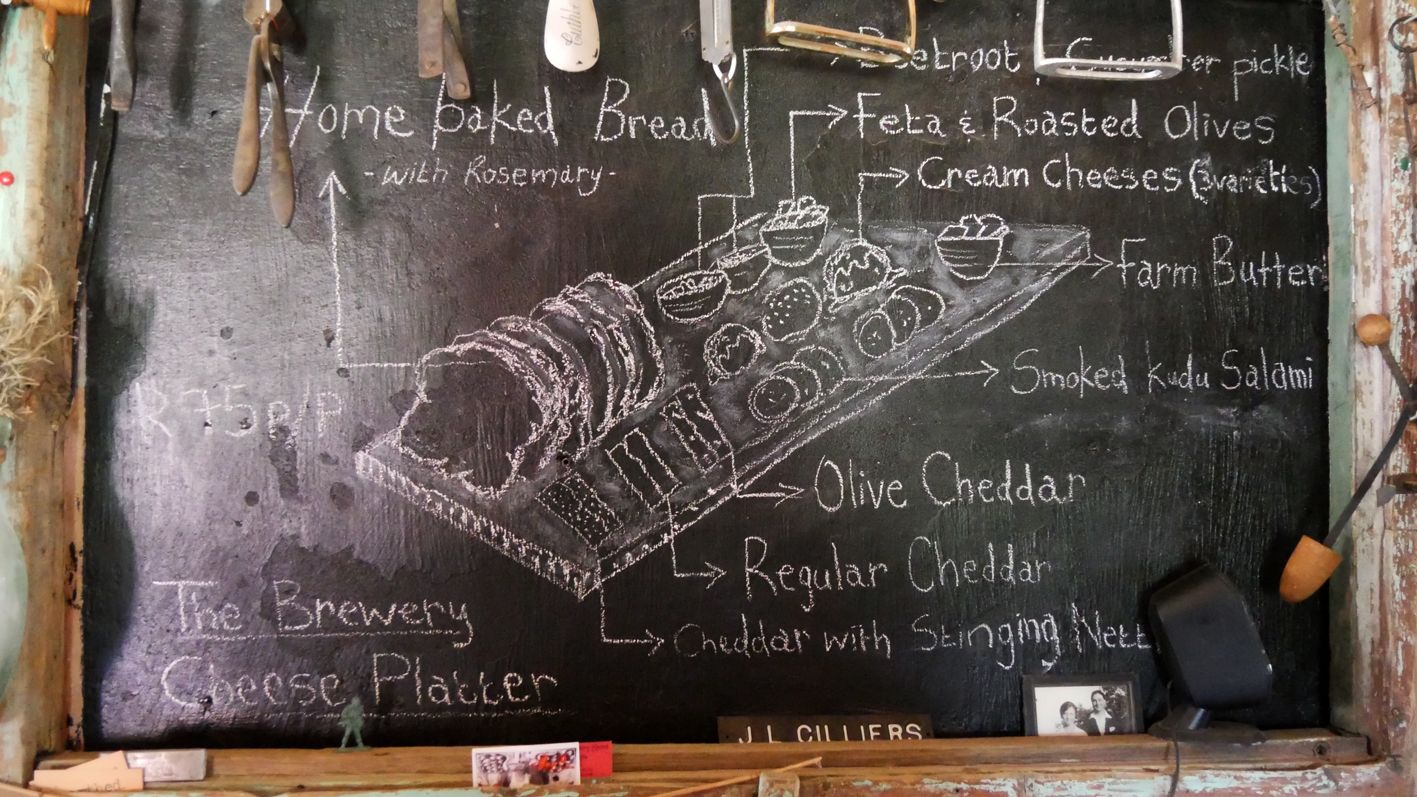 Beetroot Cucumber pickle
Home baked Bread
Feta & Roasted Olives
-with Rosemary-
Cream Cheeses (3 varieties)
Farm Butter
Smoked kudu Salami
R75 p/p
Olive Cheddar
Regular Cheddar
The Brewery
Cheddar with Stinging Nett
Cheese Platter
J L CILLIERS